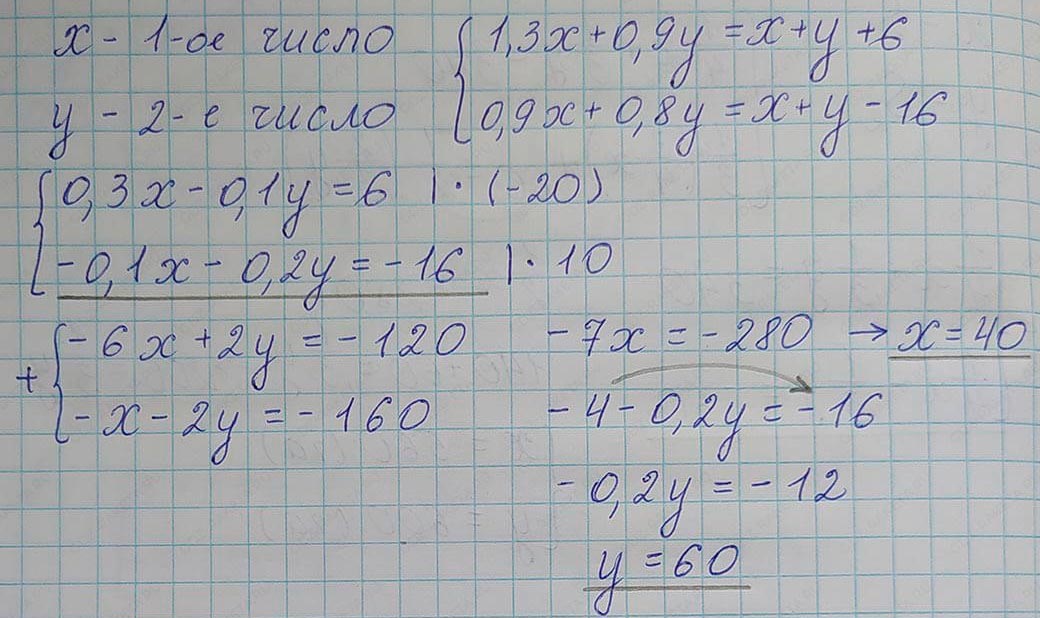 x - 1-ое число
y - 2-е число
{ 1,3x + 0,9y = x + y + 6
0,9x + 0,8y = x + y - 16
{ 0,3x - 0,1y = 6 | · (-20)
-0,1x - 0,2y = -16 | · 10
+ { -6x + 2y = -120
-x - 2y = -160
-7x = -280 → x = 40
-4 - 0,2y = -16
-0,2y = -12
y = 60